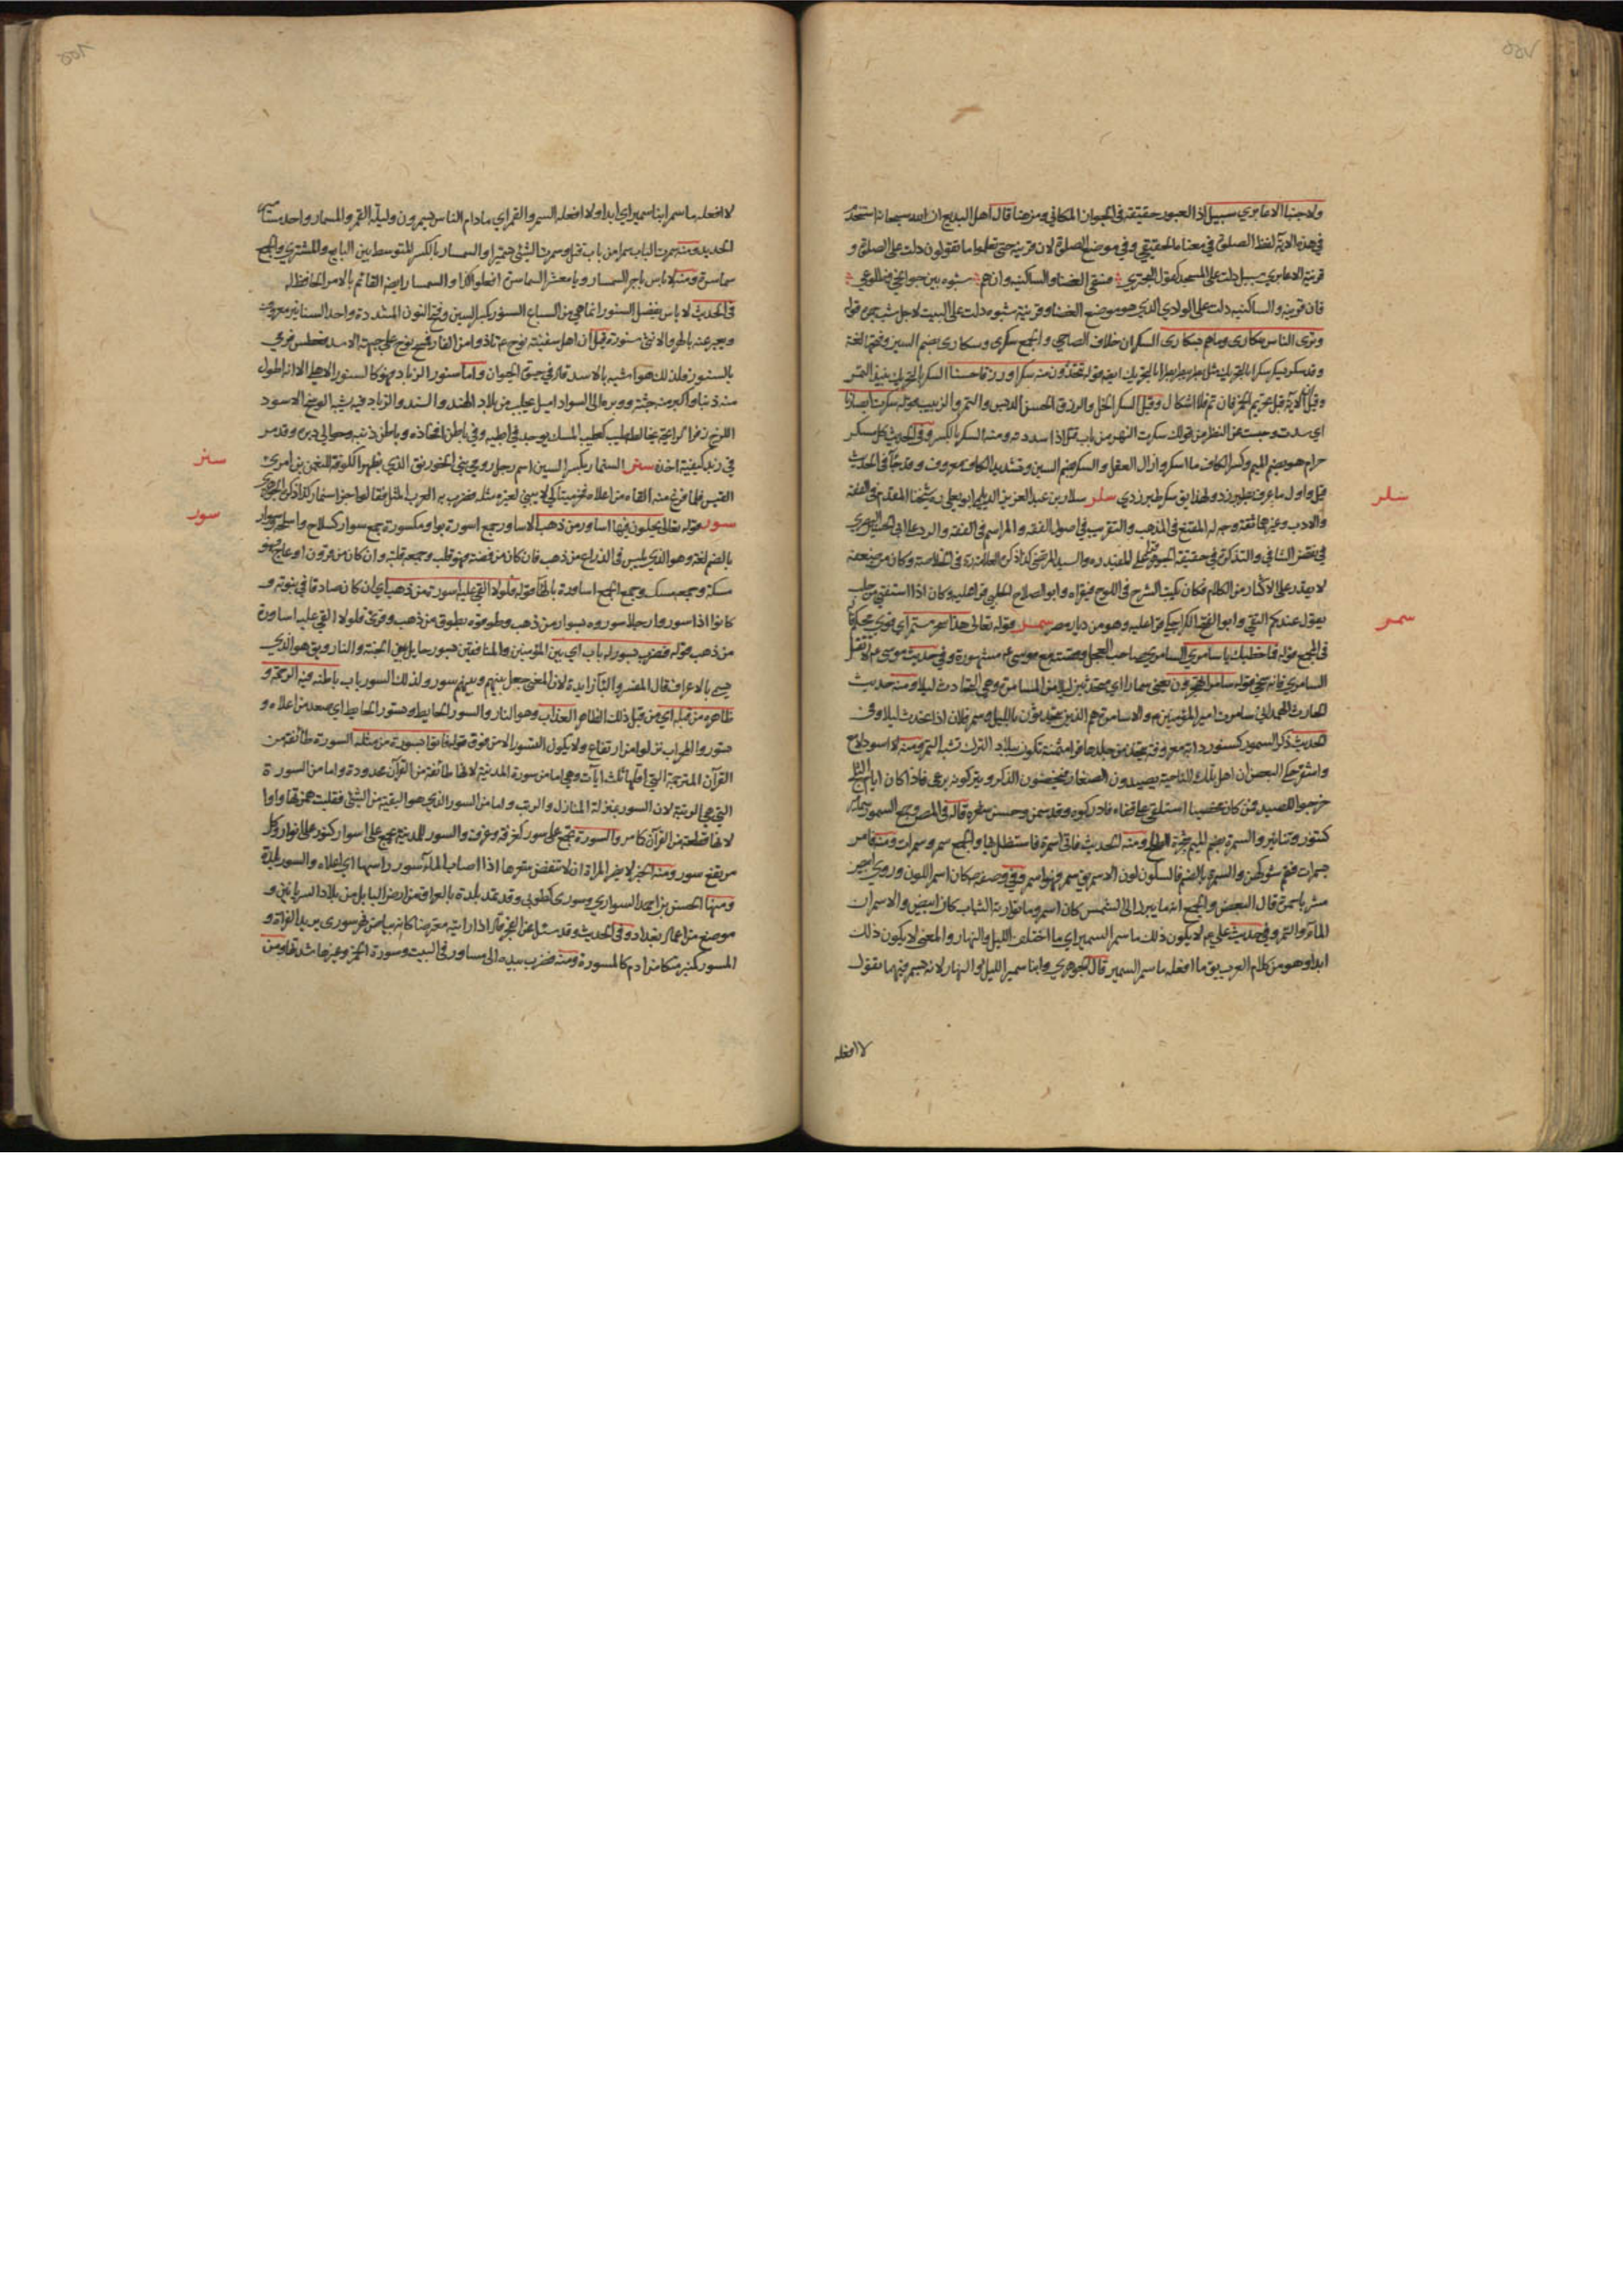 ٥٥٧
ولا جنبا الا عابري سبيل اذ العبور حقيقته في الجواز المكاني ومن هنا قال اهل البديع ان الله سبحانه استخدم
في هذه الاية لفظ الصلوة في معناه الحقيقي وفي موضع الصلوة لان قرينة حتى تعلموا ما تقولون دلت على الصلوة و
قرينة الا عابري سبيل دلت على المسجد كقول البحتري فسقى الغضا والساكنيه وان هم شبوه بين جوانحي وضلوعي
فان قرينة والساكنيه دلت على الوادي الذي هو موضع الغضا وقرينة شبوه دلت على البيت لاجل شبه قوله
وترى الناس سكارى وما هم بسكارى السكران خلاف الصاحي والجمع سكرى وسكارى بضم السين وفتحها لغة
وقد سكر يسكر سكرا بالتحريك مثل بطر يبطر بطرا بالتحريك ايضا قوله تتخذون منه سكرا ورزقا حسنا السكر بالتحريك نبيذ التمر
وقيل الاية قبل تحريم الخمر فان تم فلا اشكال وقيل السكر الخل والرزق الحسن الدبس والتمر والزبيب قوله سكرت ابصارنا
اي سدت وحبست عن النظر من قولك سكرت النهر من باب قتل اذا سددته ومنه السكر بالكسر وفي الحديث كل مسكر
حرام هو بضم الميم وكسر الكاف ما اسكر وازال العقل والسكر بضم السين وتشديد الكاف معروف وقد جاء في الحديث
قيل واول ما عرف بطبرزد ولهذا يق سكر طبرزدي سلر سلار بن عبد العزيز الديلمي ابو يعلى ره شيخنا المقدم في الفقه
سلر
والادب وغيرهما ثقة وجه له المقنع في المذهب والتقريب في اصول الفقه والمراسم في الفقه والرد على ابي الحسين البصري
في نقض الشافي والتذكرة في حقيقة الجوهر قرا على المفيد ره والسيد المرتضى كذا ذكره العلامة ره في الخلاصة وكان من ضعفه
لا يقدر على الاكثار من الكلام فكان يكتب الشرح في اللوح فيقراه وابو الصلاح الحلبي قرا عليه وكان اذا استفتي من حلب
يقول عندكم التقي وابو الفتح الكراجكي قرا عليه وهو من ديار مصر سمر قوله تعالى هذا سحر مستمر اي قوي محكم
سمر
في المجمع قوله فما خطبك يا سامري السامري صاحب العجل وقصته مع موسى ع مشهورة وفي حديث موسى ع لا تقتل
السامري فانه سخي قوله سامرا تهجرون يعني سمارا اي متحدثين ليلا من المسامرة وهي التحادث ليلا ومنه حديث
الحارث الهمداني سامرت امير المؤمنين ع والسامرة هم الذين يتحدثون بالليل وسمر فلان اذا تحدث ليلا وفي
الحديث ذكر السمور كسنور دابة معروفة يتخذ من جلدها فراء مثمنة تكون ببلاد الترك تشبه النمر ومنه لاسود لامع
واشقر حكى البعض ان اهل تلك الناحية يصيدون الصغار فيخصون الذكر ويتركونه يرعى فاذا كان ايام الثلج
خرجوا للصيد فمن كان مخصيا استلقى على قفاه فادركوه وقد سمن وحسن شعره قاله في المصباح وجمع السمور سمامير
كتنور وتنانير والسمرة بضم الميم شجرة الطلح ومنه الحديث فاتى سمرة فاستظل بها والجمع سمر وسمرات ومنه فامر
بسمرات فقم شوكهن والسمرة بالضم فالسكون لون الاسمر يق سمر فهو اسمر وفي وصفه ص كان اسمر اللون وروي ابيض
مشربا حمرة قال البعض والجمع انه ما يبرز الى الشمس كان اسمر وما تواريه الثياب كان ابيض والاسمران
الماء والتمر وفي حديث علي ع لا يكون ذلك ما سمر السمير اي ما اختلف الليل والنهار والمعنى لا يكون ذلك
ابدا وهو من كلام العرب يق ما افعله ما سمر السمير قال الجوهري وابنا سمير الليل والنهار لانه يسمر فيهما يقول
لا افعله
٥٥٨
لا افعله ما سمر ابنا سمير اي ابدا ولا افعله السمر والقمر اي ما دام الناس يسمرون وليلة القمر والمسمار واحد مسامير
الحديد ومنه سمرت الباب سمرا من باب قتل وسمرت الشئ تسميرا والسمسار بالكسر المتوسط بين البايع والمشتري والجمع
سماسرة ومنه لا باس باجر السمسار ويا معشر السماسرة افعلوا كذا والسمسار ايضا القائم بالامر الحافظ له
في الحديث لا باس بفضل السنور انما هي من السباع السنور بكسر السين وفتح النون المشددة واحد السنانير معروف
ويعبر عنه بالهر والانثى سنورة قيل ان اهل سفينة نوح ع تاذوا من الفار فمسح نوح على جبهة الاسد فعطس فرمى
بالسنور فلذلك هو اشبه بالاسد قاله في حيوة الحيوان واما سنور الزباد فهو كالسنور الاهلي الا انه اطول
منه ذنبا واكبر منه جثة ووبره الى السواد اميل يجلب من بلاد الهند والسند والزباد فيه شبه الوسخ الاسود
اللزج زفر الرايحة يخالطه طيب كطيب المسك يوجد في ابطيه وفي باطن افخاذه وباطن ذنبه وحوالي دبره وقد مر
في زبد كيفية اخذه سنمر السنمار بكسر السين اسم رجل رومي بنى الخورنق الذي بظهر الكوفة للنعمن بن امرئ
سنمر
القيس فلما فرغ منه القاه من اعلاه فخر ميتا كي لا يبني لغيره مثله فضرب به العرب المثل فقالوا جزاء سنمار كذا ذكره الجوهري
سور قوله تعالى يحلون فيها اساور من ذهب الاساور جمع اسورة بواو مكسورة جمع سوار كسلاح واسلحة وسوار
سور
بالضم لغة وهو الذي يلبس في الذراع من ذهب فان كان من فضة فهو قلب وجمعه قلبة وان كان من قرون او عاج فهو
مسكة وجمعه مسك وجمع الجمع اساورة بالهاء قوله فلولا القي عليه اسورة من ذهب اي ان كان صادقا في نبوته و
كانوا اذا سوروا رجلا سوروه بسوار من ذهب وطوقوه بطوق من ذهب وقرئ فلولا القي عليه اساورة
من ذهب قوله فضرب بينهم بسور له باب اي بين المؤمنين والمنافقين بسور حايل بين الجنة والنار ويق هو الذي
يسمى بالاعراف قال المفسر والباء زايدة لان المعنى جعل بينهم وبينهم سور ولذلك السور باب باطنه فيه الرحمة و
ظاهره من قبله اي من قبل ذلك الظاهر العذاب وهو النار والسور الحايط وتسور الحايط اي صعد من اعلاه و
تسوروا المحراب نزلوا من ارتفاع ولا يكون التسور الا من فوق قوله فاتوا بسورة من مثله السورة طائفة من
القرآن المترجمة التي اقلها ثلث ايات وهي اما من سورة المدينة لانها طائفة من القرآن محدودة واما من السورة
التي هي الرتبة لان السور بمنزلة المنازل والرتب واما من السؤر الذي هو البقية من الشئ فقلبت همزتها واوا
لانها قطعة من القرآن كما مر والسورة تجمع على سور كغرفة وغرف والسور للمدينة يجمع على اسوار كنور على انوار وكل
مرتفع سور ومنه الخبر لا يضر المراة ان لا تنقض شعرها اذا اصاب الماء سور راسها اي اعلاه والسور بلدة
ومنها الحسن بن احمد السواري وسورى كطوبى وقد تمد بلدة بالعراق من ارض بابل من بلاد السريانين و
موضع من اعمال بغداد وفي الحديث وقد سئل عن الفجر قال اذا رايته معترضا كانه بياض نهر سورى يريد الفرات و
المسور كمنبر متكا من ادم كالمسورة ومنه فضرب بيده الى مساور في البيت وسورة الخمر وغيرها شدتها ومن